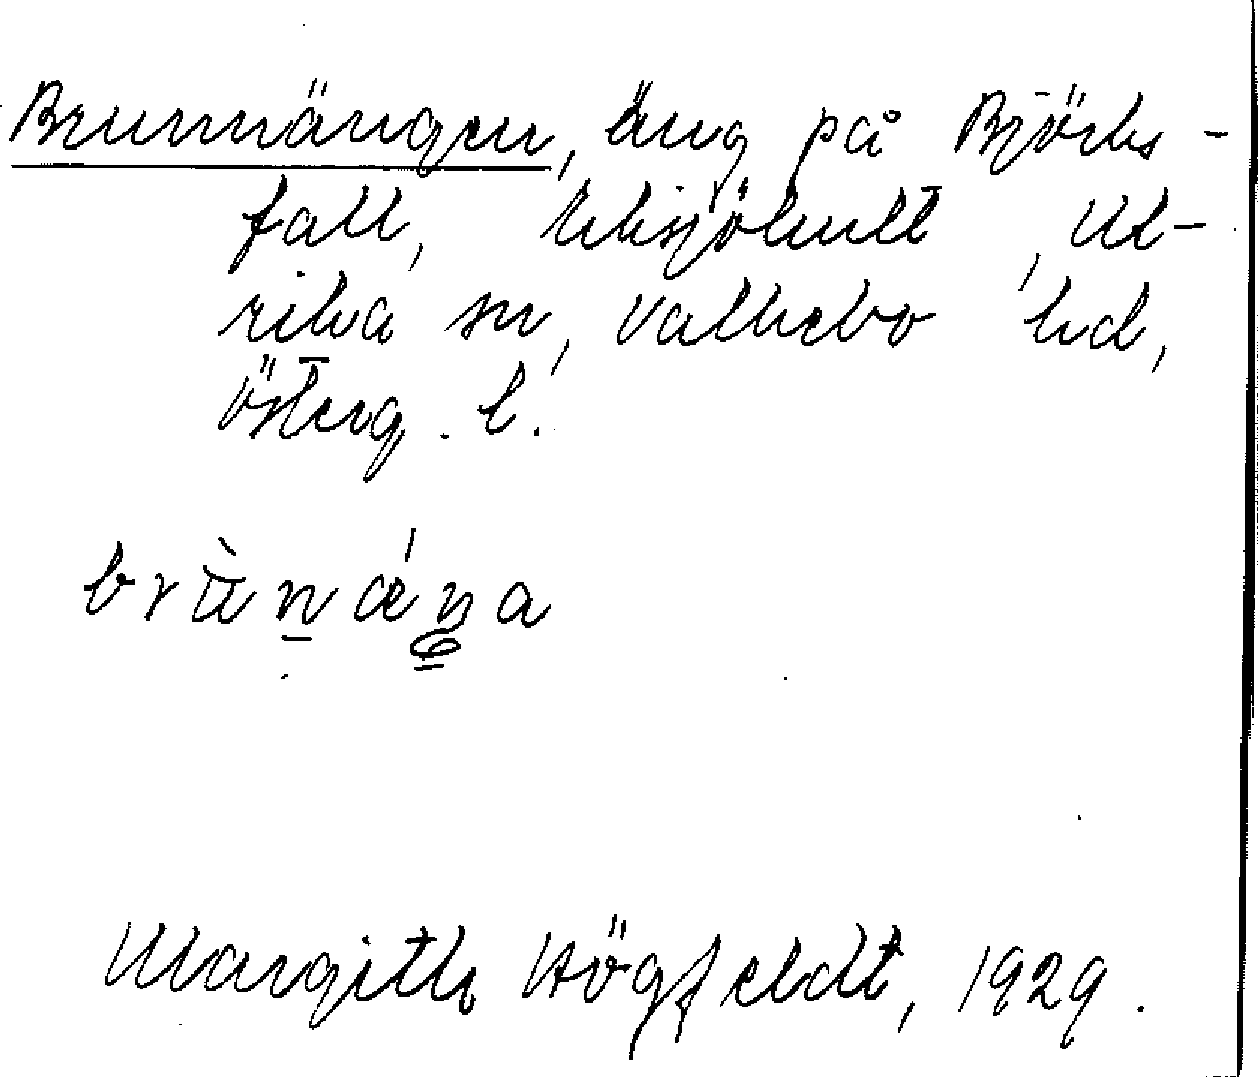 Brunnängen, äng på Björks-
fall, Liksjöhult, Ul-
rika sn, Valkebo hd,
Österg. l.
brùn̠ǽŋa
Margith Högfeldt, 1929.